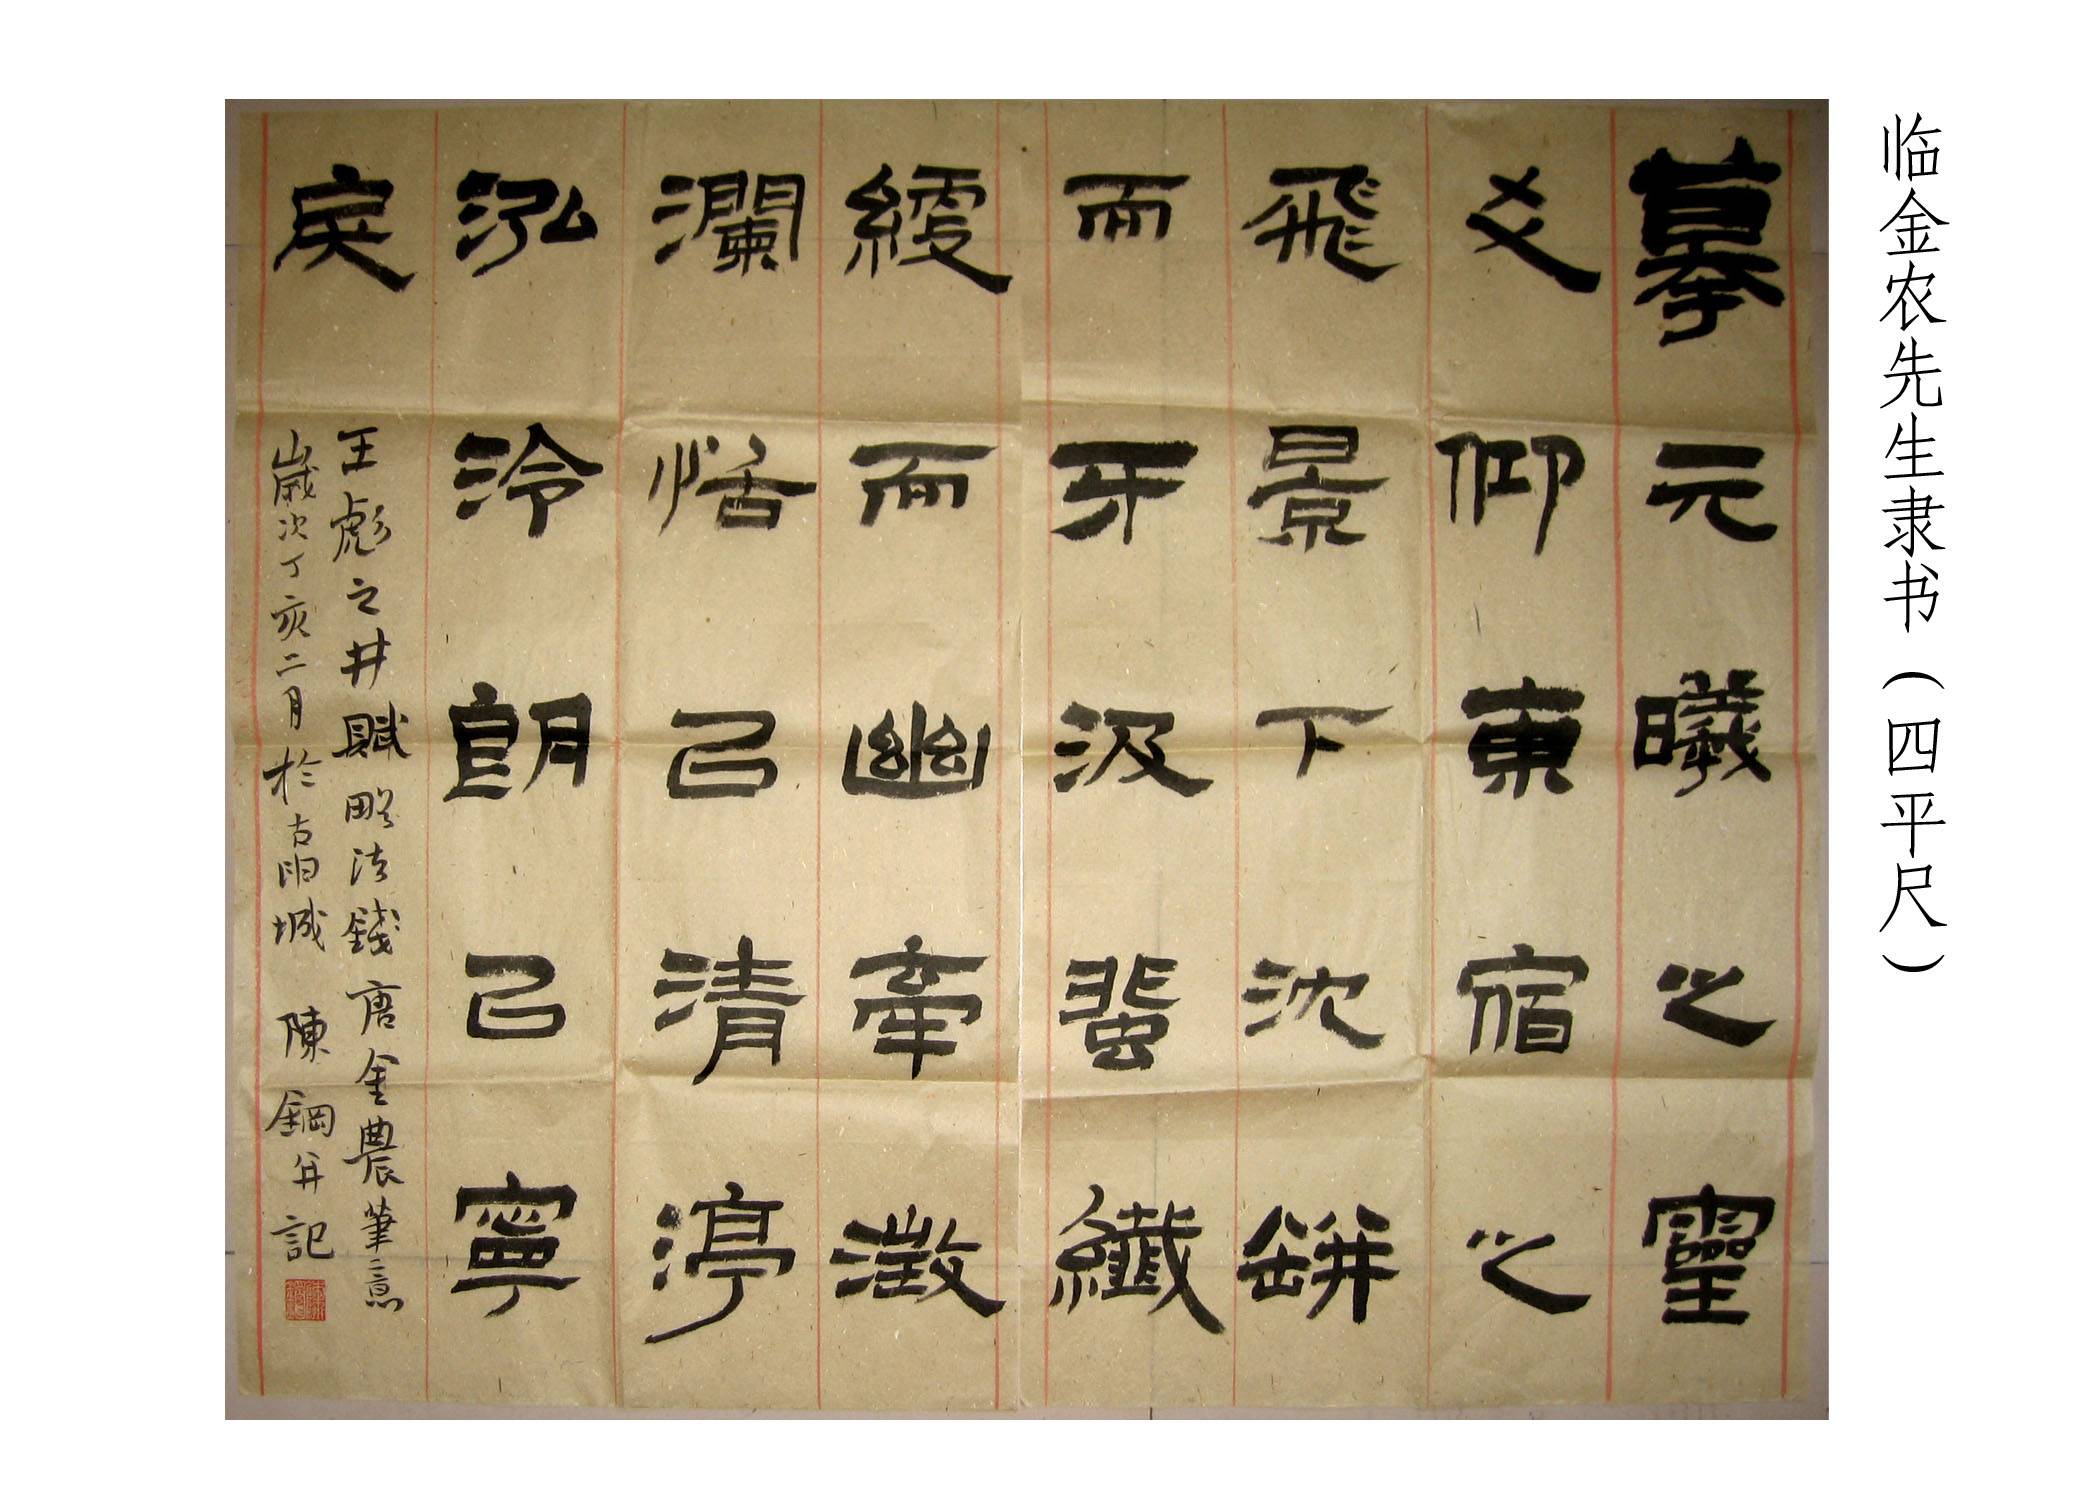 临金农先生隶书（四平尺）
摹元曦之靈
爻仰東宿之
飛景下沈缾
而牙汲蜚纖
綆而幽牽澂
瀾恬已清渟
泓泠朗已寧
戾
王彪之井賦略法錢唐金農筆意
歲次丁亥二月於古城 陳鋼并記